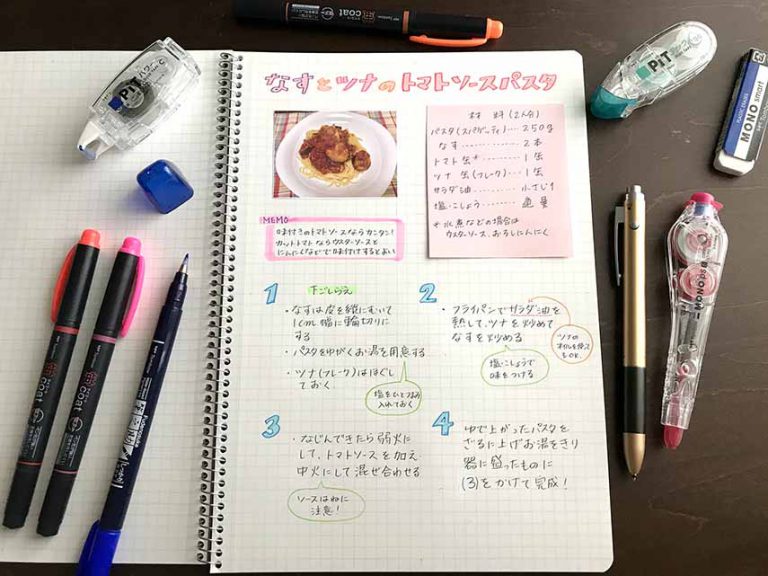 なすとツナのトマトソースパスタ
材料(2人分)
パスタ(スパゲッティ)…250g
なす…………2本
トマト缶*……1缶
ツナ缶(フレーク)…1缶
サラダ油…………小さじ1
塩・こしょう……適量
*水煮などの場合は
ウスターソース、おろしにんにく
MEMO
味付きのトマトソースならカンタン!
カットトマトならウスターソースと
にんにくなどで味付けするとよい
1 下ごしらえ
・なすは皮を縦にむいて
1cm幅に輪切りに
する
・パスタをゆがくお湯を用意する
・ツナ(フレーク)はほぐし
ておく
塩をひとつまみ
入れておく
2
・フライパンでサラダ油を
熱して、ツナを炒めて
なすを炒める
ツナの
オイルを使っても
OK.
塩・こしょうで
味をつける
3
・なじんできたら弱火に
して、トマトソースを加え
中火にして混ぜ合わせる
ソースはねに
注意!
4
ゆで上がったパスタを
ざるに上げお湯をきり
器に盛ったものに
(3)をかけて完成!
PiT
PiT
MONO smart
MONO
coat
coat
coat